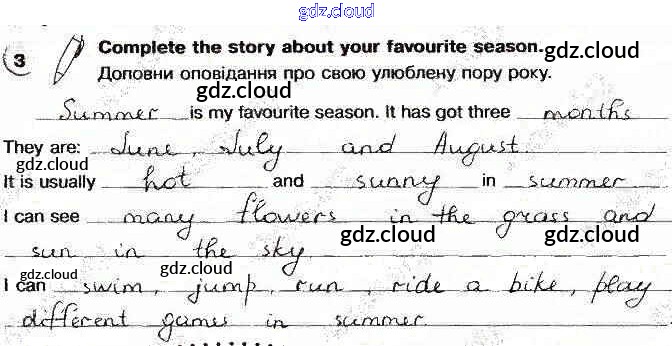 gdz.cloud
3 Complete the story about your favourite season. gdz.cloud
Доповни оповідання про свою улюблену пору року.
gdz.cloud
Summer is my favourite season. It has got three months
They are: June, July and August.
gdz.cloud
It is usually hot and sunny in summer
I can see many flowers in the grass and
sun in the sky. gdz.cloud gdz.cloud
gdz.cloud
I can swim, jump, run, ride a bike, play
different games in summer.